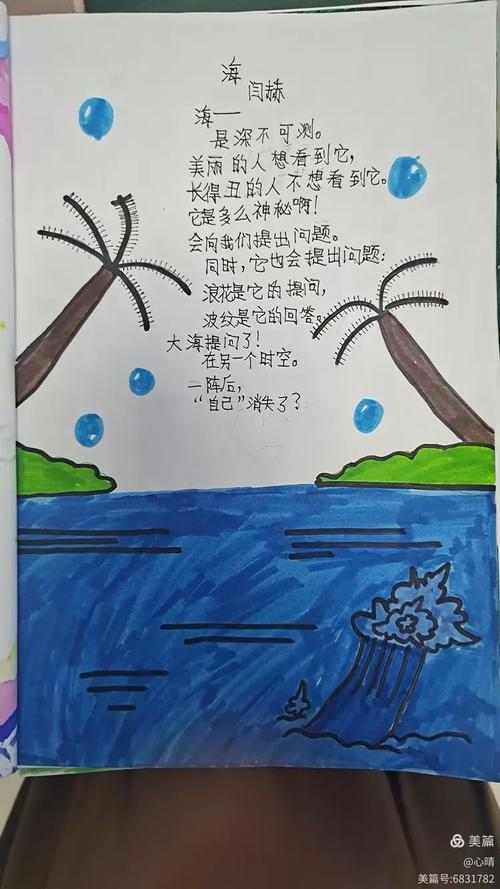 海
闫赫
海——
是深不可测。
美丽的人想看到它,
长得丑的人不想看到它。
它是多么神秘啊!
会向我们提出问题。
同时,它也会提出问题:
浪花是它的提问,
波纹是它的回答。
大海提问了!
在另一个时空。
一阵后,
“自己”消失了?
美篇
@心晴
美篇号:6831782